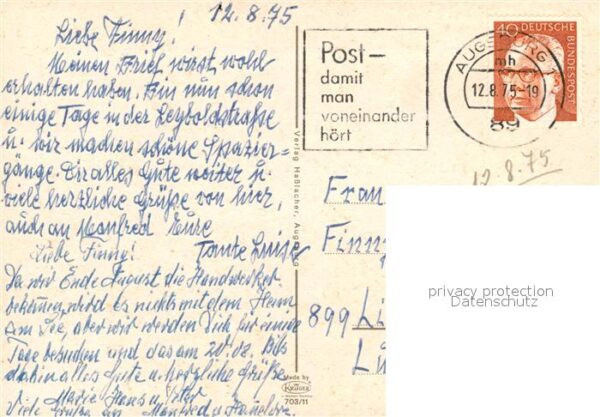 12.8.75
Liebe Finny!
Meinen Brief wirst wohl
erhalten haben. Bin nun schon
einige Tage in der Leyboldstraße
u. wir machen schöne Spazier-
gänge. Dir alles Gute weiter u.
viele herzliche Grüße von hier,
auch an Manfred Eure
Tante Luise
Liebe Finny!
Da wir Ende August die Handwerker
bekommen, wird es nichts mit dem Heim
am See, aber wir werden Dich für einige
Tage besuchen und das am 20.08. Bis
dahin alles Gute u. herzliche Grüße
Marie Hans u. Peter
Viele Grüße von Manfred u. Hannelore
Post –
damit
man
voneinander
hört
AUGSBURG
mh
12.8.75-19
89
40 DEUTSCHE
BUNDESPOST
12.8.75
Frau
Finny
899 Li
Verlag Haßlacher, Augsburg
Made by
KRÜGER
703/11
privacy protection
Datenschutz